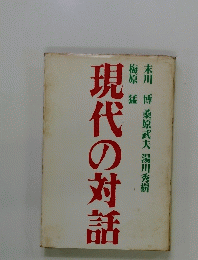 末川 博 桑原武夫 湯川秀樹
梅原 猛
現代の対話